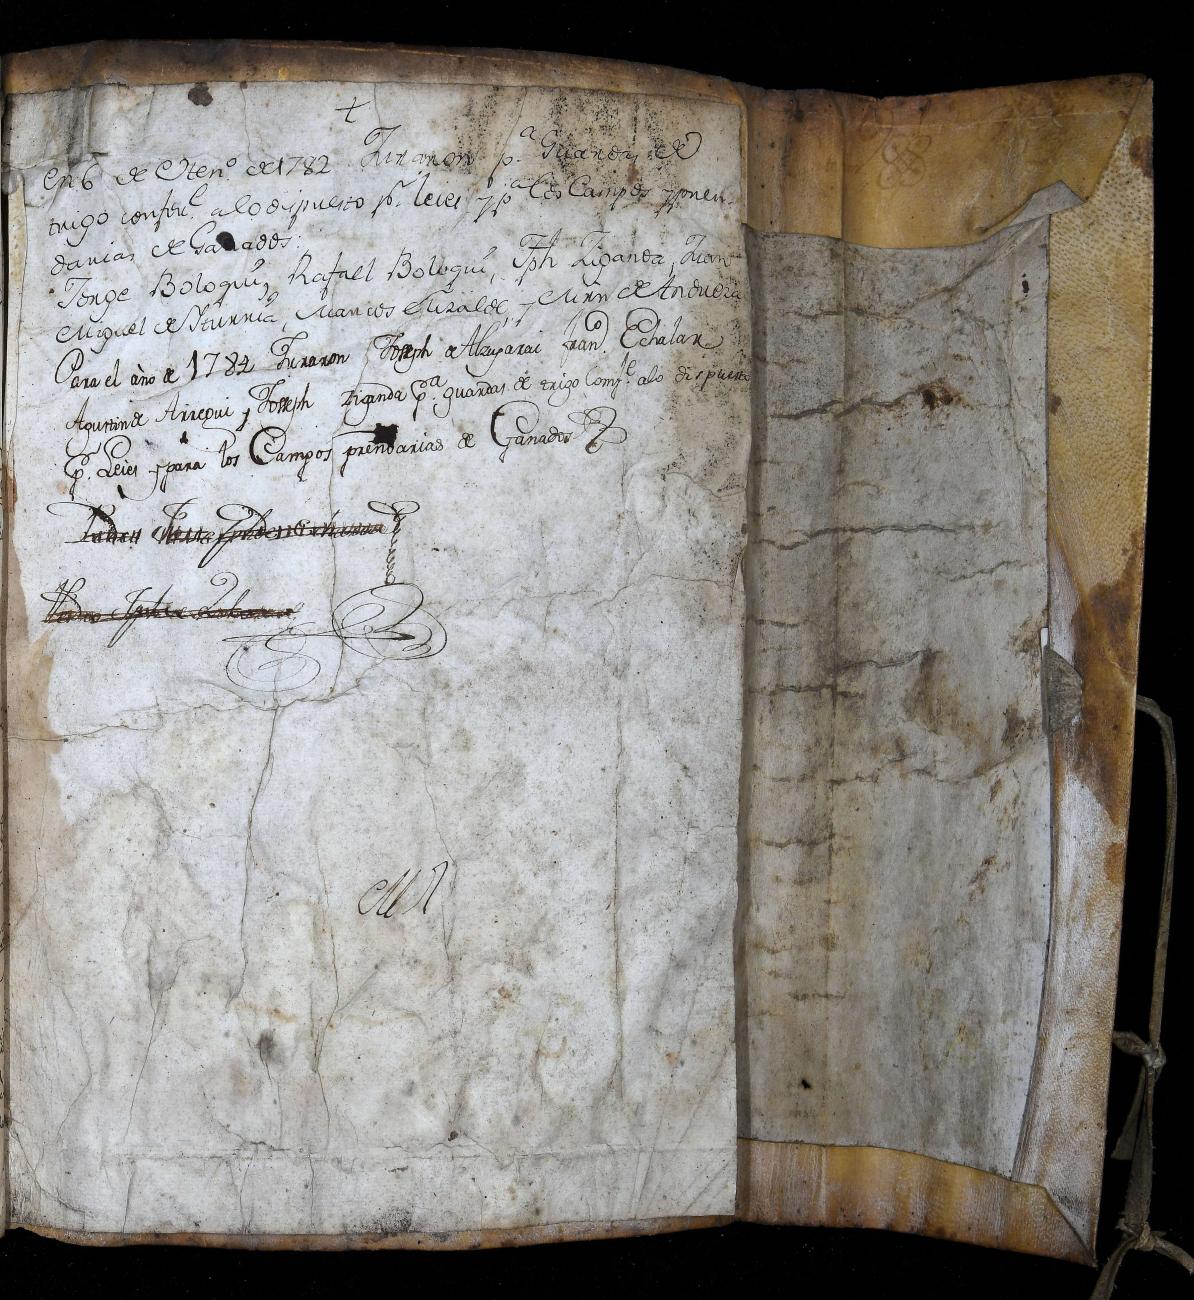 +
en 6 de Eten.o de 1782 Juraron p.a Guardas de
trigo confor.e alo dispuesto p.r leies, y p.a los Campos y pren-
darias de Ganados:
Jorge Bologui, Rafael Bologui, Jph Ziganda, Juan
Miguel de Yturria, Marcos Elizalde, y Mrn de Andueza
Para el año de 1784 Juraron Joseph de Alzugarai Fran.co Echalar
Agustin de Arregui y Joseph Ziganda p.a guardas de trigo Comf.e alo dispuesto
p.r Leies y para los Campos prendarias de Ganados